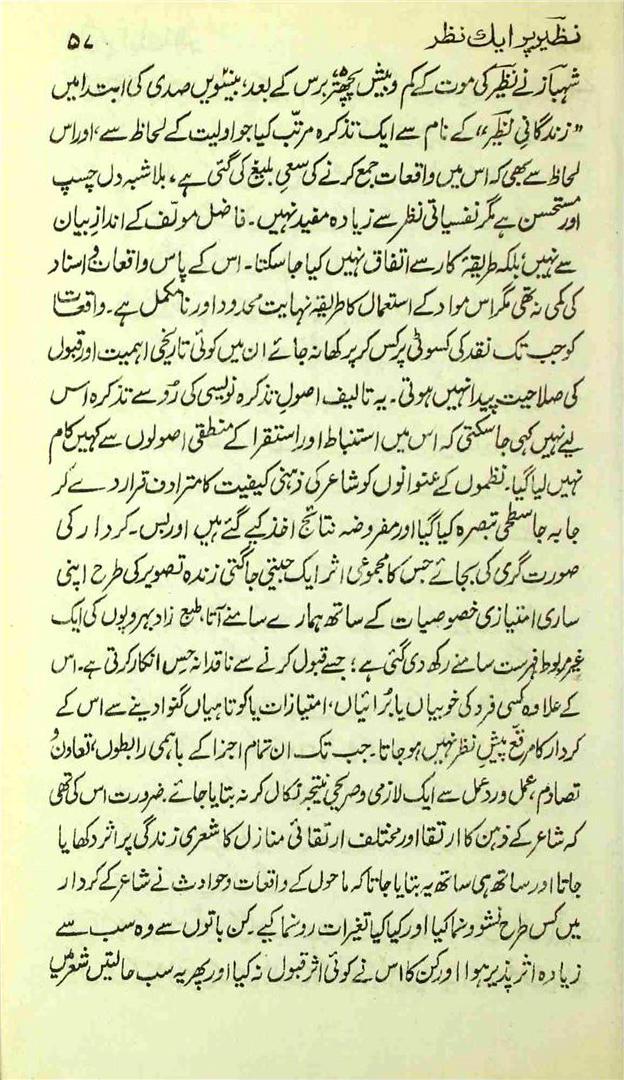 نظیر پر ایک نظر ۵۷
شہباز نے نظیر کی موت کے کم و بیش پچھتر برس کے بعد، بیسویں صدی کی ابتدا میں
"زندگانی نظیر" کے نام سے ایک تذکرہ مرتب کیا جو اولیت کے لحاظ سے، اور اس
لحاظ سے بھی کہ اس میں واقعات جمع کرنے کی سعی بلیغ کی گئی ہے، بلاشبہ دل چسپ
اور مستحسن ہے مگر نفسیاتی نظر سے زیادہ مفید نہیں۔ فاضل مولّف کے اندازِ بیان
سے نہیں بلکہ طریقۂ کار سے اتفاق نہیں کیا جا سکتا۔ اس کے پاس واقعات و اسناد
کی کمی نہ تھی مگر اس مواد کے استعمال کا طریقہ نہایت محدود اور نامکمل ہے۔ واقعات
کو جب تک نقد کی کسوٹی پر کس کر پرکھا نہ جائے ان میں کوئی تاریخی اہمیت اور قبول
کی صلاحیت پیدا نہیں ہوتی۔ یہ تالیف اصولِ تذکرہ نویسی کی رُو سے تذکرہ اس
لیے نہیں کہی جا سکتی کہ اس میں استنباط اور استقرا کے منطقی اصولوں سے کہیں کام
نہیں لیا گیا۔ نظموں کے عنوانوں کو شاعر کی ذہنی کیفیت کا مترادف قرار دے کر
جا بہ جا سطحی تبصرہ کیا گیا اور مفروضہ نتائج اخذ کیے گئے ہیں اور بس۔ کردار کی
صورت گری کی بجائے جس کا مجموعی اثر ایک جیتی جاگتی زندہ تصویر کی طرح اپنی
ساری امتیازی خصوصیات کے ساتھ ہمارے سامنے آتا، طبع زاد بہروپوں کی ایک
غیر مربوط فہرست سامنے رکھ دی گئی ہے؛ جسے قبول کرنے سے ناقدانہ حِس انکار کرتی ہے۔ اس
کے علاوہ کسی فرد کی خوبیاں یا بُرائیاں، امتیازات یا کوتاہیاں گنوا دینے سے اس کے
کردار کا مرقّع پیشِ نظر نہیں ہو جاتا۔ جب تک ان تمام اجزا کے باہمی رابطوں، تعاون و
تصادم، عمل و ردِ عمل سے ایک لازمی و صریحی نتیجہ نکال کر نہ بتایا جائے۔ ضرورت اس کی تھی
کہ شاعر کے ذہن کا ارتقا اور مختلف ارتقائی منازل کا شعری زندگی پر اثر دکھایا
جاتا اور ساتھ ہی ساتھ یہ بتایا جاتا کہ ماحول کے واقعات و حوادث نے شاعر کے کردار
میں کس طرح نشوونما کیا اور کیا کیا تغیرات رونما کیے۔ کن باتوں سے وہ سب سے
زیادہ اثر پذیر ہوا اور کن کا اس نے کوئی اثر قبول نہ کیا اور پھر یہ سب حالتیں شعر میں